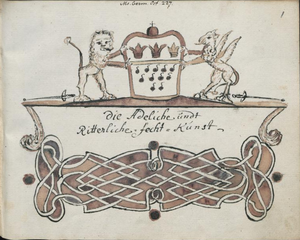 Ms. Germ. Oct. 227.
1
die Adeliche undt
Ritterliche fecht-Kunst